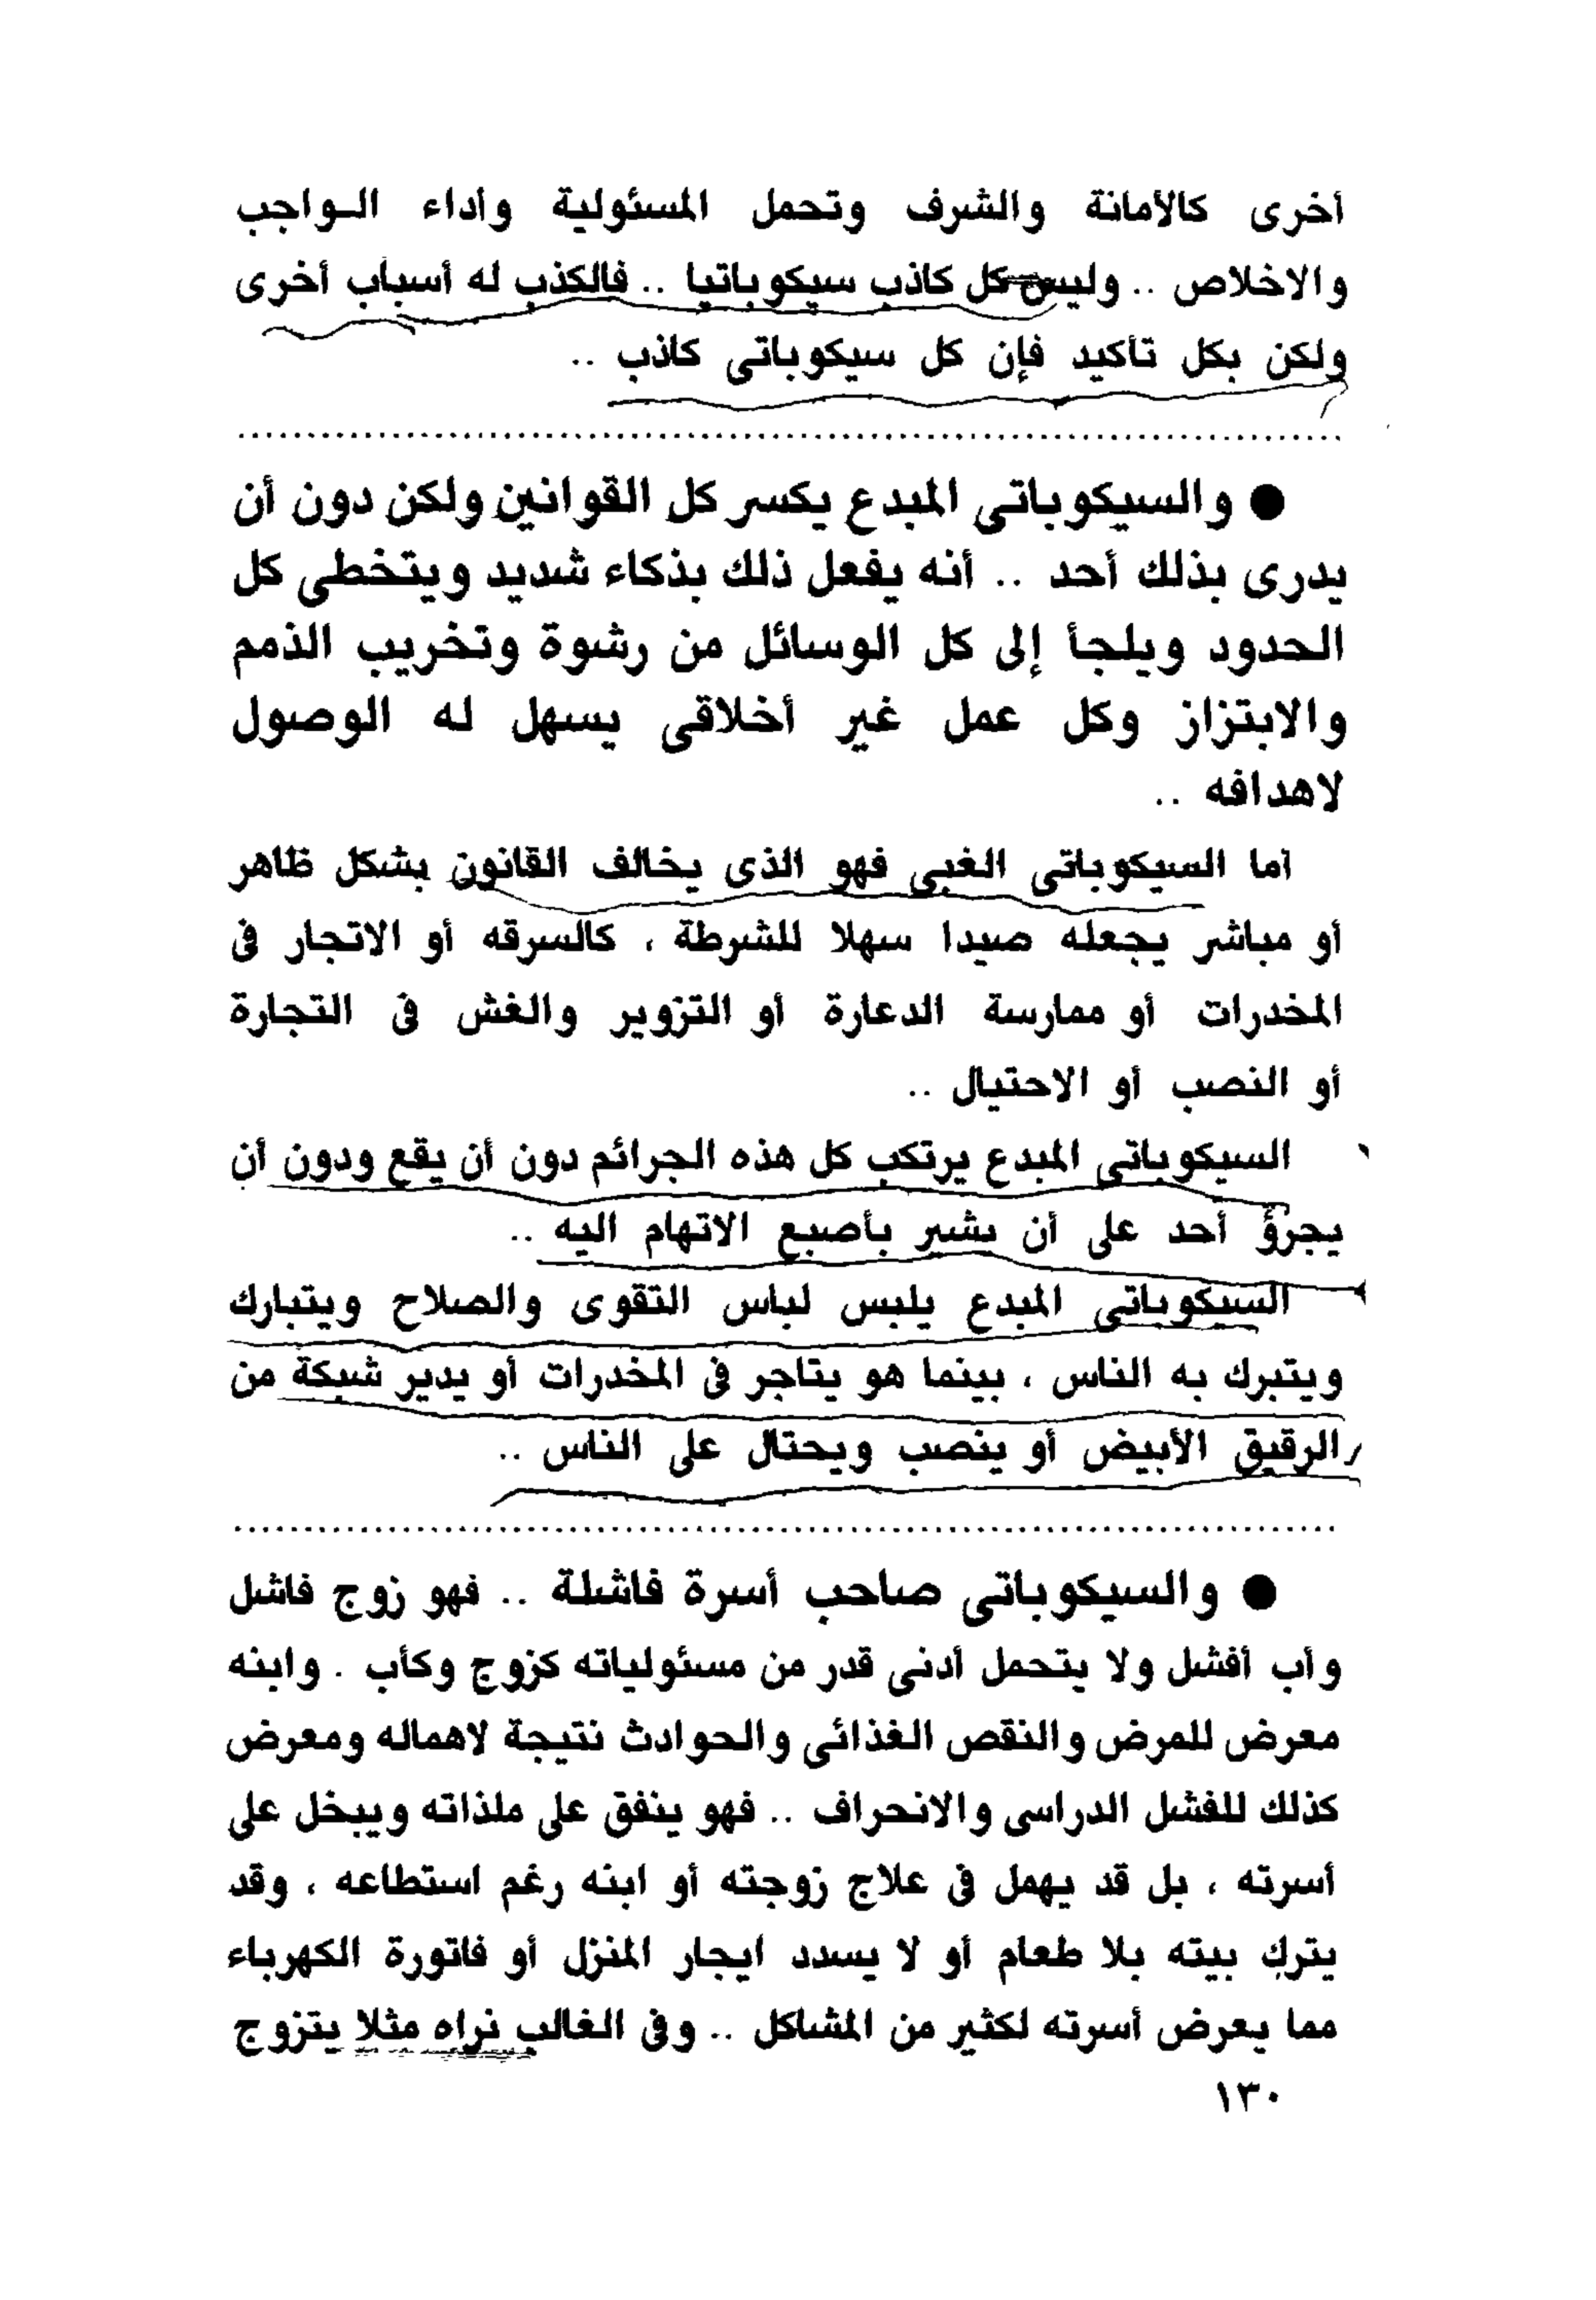 أخرى كالأمانة والشرف وتحمل المسئولية وأداء الـواجب
والاخلاص .. وليس كل كاذب سيكوباتيا .. فالكذب له أسباب أخرى
ولكن بكل تأكيد فإن كل سيكوباتى كاذب ..
● والسيكوباتى المبدع يكسر كل القوانين ولكن دون أن
يدرى بذلك أحد .. أنه يفعل ذلك بذكاء شديد ويتخطى كل
الحدود ويلجأ إلى كل الوسائل من رشوة وتخريب الذمم
والابتزاز وكل عمل غير أخلاقى يسهل له الوصول
لاهدافه ..
أما السيكوباتى الغبى فهو الذى يخالف القانون بشكل ظاهر
أو مباشر يجعله صيدا سهلا للشرطة ، كالسرقه أو الاتجار فى
المخدرات أو ممارسة الدعارة أو التزوير والغش فى التجارة
أو النصب أو الاحتيال ..
السيكوباتى المبدع يرتكب كل هذه الجرائم دون أن يقع ودون أن
يجرؤ أحد على أن يشير بأصبع الاتهام اليه ..
السيكوباتى المبدع يلبس لباس التقوى والصلاح ويتبارك
ويتبرك به الناس ، بينما هو يتاجر فى المخدرات أو يدير شبكة من
الرقيق الأبيض أو ينصب ويحتال على الناس ..
● والسيكوباتى صاحب أسرة فاشلة .. فهو زوج فاشل
وأب أفشل ولا يتحمل أدنى قدر من مسئولياته كزوج وكأب . وابنه
معرض للمرض والنقص الغذائى والحوادث نتيجة لاهماله ومعرض
كذلك للفشل الدراسى والانحراف .. فهو ينفق على ملذاته ويبخل على
أسرته ، بل قد يهمل فى علاج زوجته أو ابنه رغم استطاعه ، وقد
يترك بيته بلا طعام أو لا يسدد ايجار المنزل أو فاتورة الكهرباء
مما يعرض أسرته لكثير من المشاكل .. وفى الغالب نراه مثلا يتزوج
١٣٠